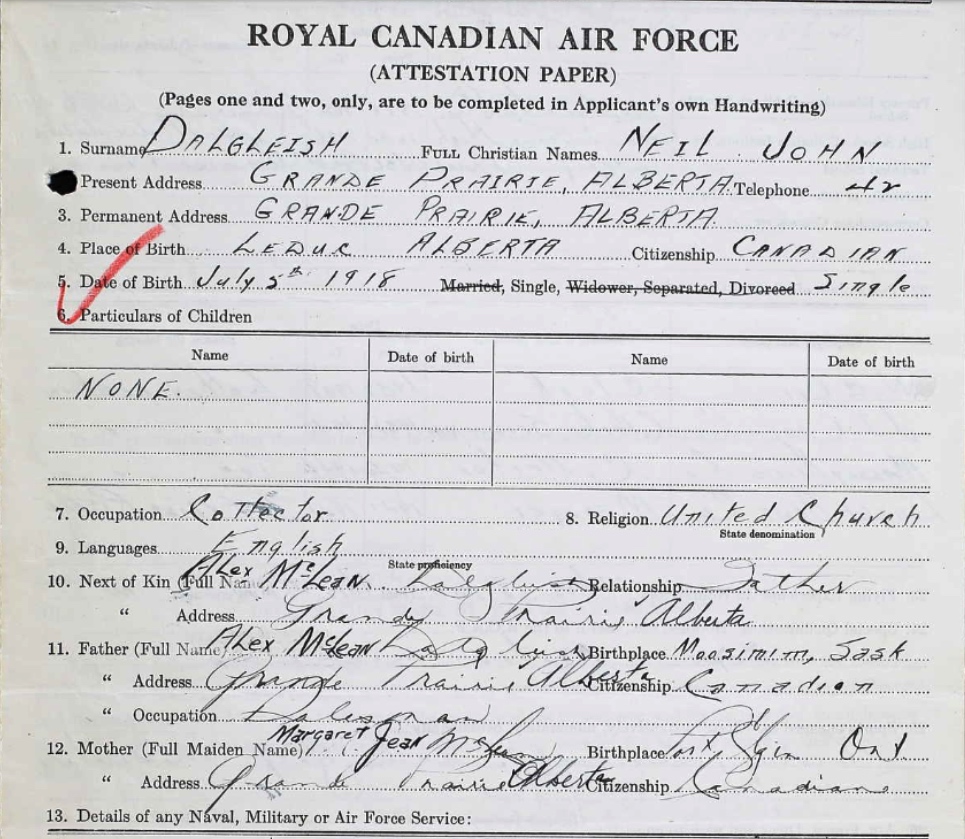 ROYAL CANADIAN AIR FORCE
(ATTESTATION PAPER)
(Pages one and two, only, are to be completed in Applicant's own Handwriting)
1. Surname DALGLEISH FULL Christian Names NEIL JOHN
Present Address GRANDE PRAIRIE, ALBERTA. Telephone 42
3. Permanent Address GRANDE PRAIRIE, ALBERTA.
4. Place of Birth LEDUC ALBERTA Citizenship CANADIAN
5. Date of Birth July 5th 1918 Married, Single, Widower, Separated, Divorced Single
6. Particulars of Children
Name Date of birth Name Date of birth
NONE.
7. Occupation 8. Religion United Church
State denomination
9. Languages English
State proficiency
10. Next of Kin (Full Name) Alex McLean Dalgleish Relationship Father
" Address Grande Prairie Alberta
11. Father (Full Name) Alex McLean Dalgleish Birthplace Moosimim, Sask
" Address Grande Prairie Alberta Citizenship Canadian
" Occupation Salesman
12. Mother (Full Maiden Name) Margaret Jean Birthplace Port Elgin Ont
" Address Grande Prairie Alberta Citizenship Canadian
13. Details of any Naval, Military or Air Force Service: